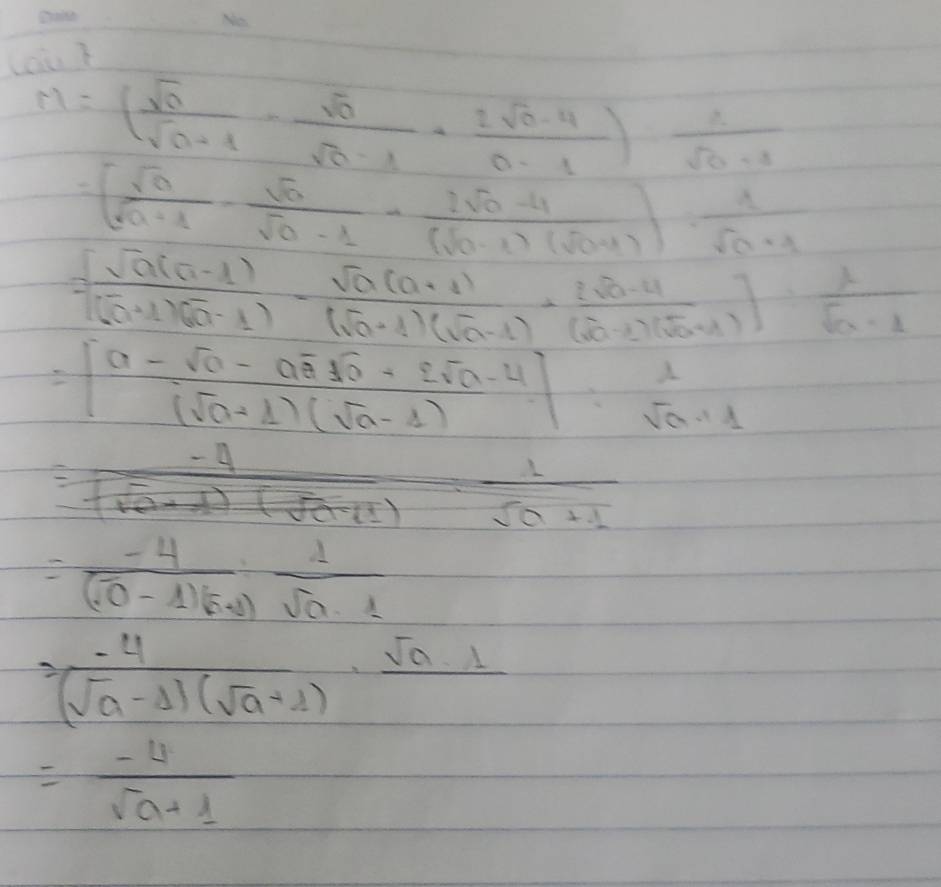 Date No.
Câu 7
M = (√a/(√a+1) - √a/(√a-1) + (2√a-4)/(a-1)) : 1/(√a-1)
= [√a/(√a+1) - √a/(√a-1) + (2√a-4)/((√a-1)(√a+1))] : 1/(√a-1)
= [√a(a-1)/((√a+1)(√a-1)) - √a(a+1)/((√a+1)(√a-1)) + (2√a-4)/((√a-1)(√a+1))] : 1/(√a-1)
= [(a - √a - a - √a + 2√a - 4)/((√a+1)(√a-1))] : 1/(√a-1)
= -4/((√a-1)(√a+1)) : 1/(√a-1)
= -4/((√a-1)(√a+1)) . √a-1
= -4/(√a+1)